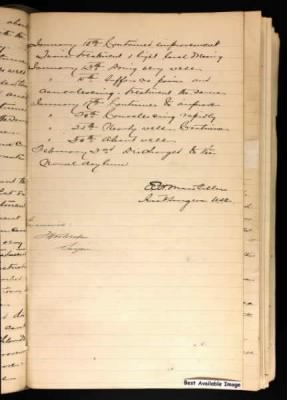 January 10th Continued improvement
Same treatment & light food. Moving
January 13th Doing very well.
" 15th Suffers no pain and
convalescing. Treatment the same
January 17th Continues to improve
" 20th Convalescing rapidly
" 25th Nearly well. Continue
" 30th About well.
February 2nd Discharged to the
Naval Asylum
Surgeon
Best Available Image